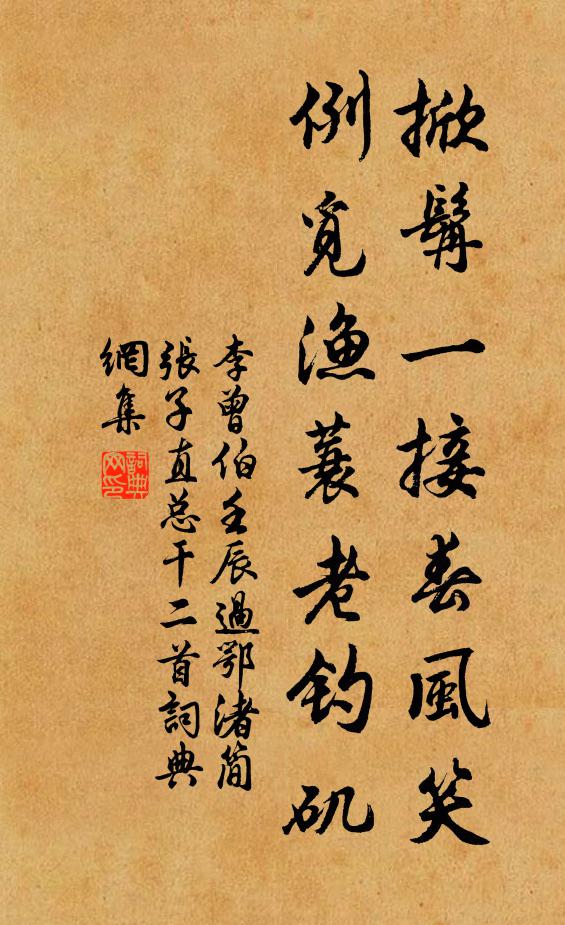 掀髯一接春風笑
例覓漁蓑老釣矶
李曾伯壬辰過鄂渚简
張子直总干二首詞典
網集
詞典网印